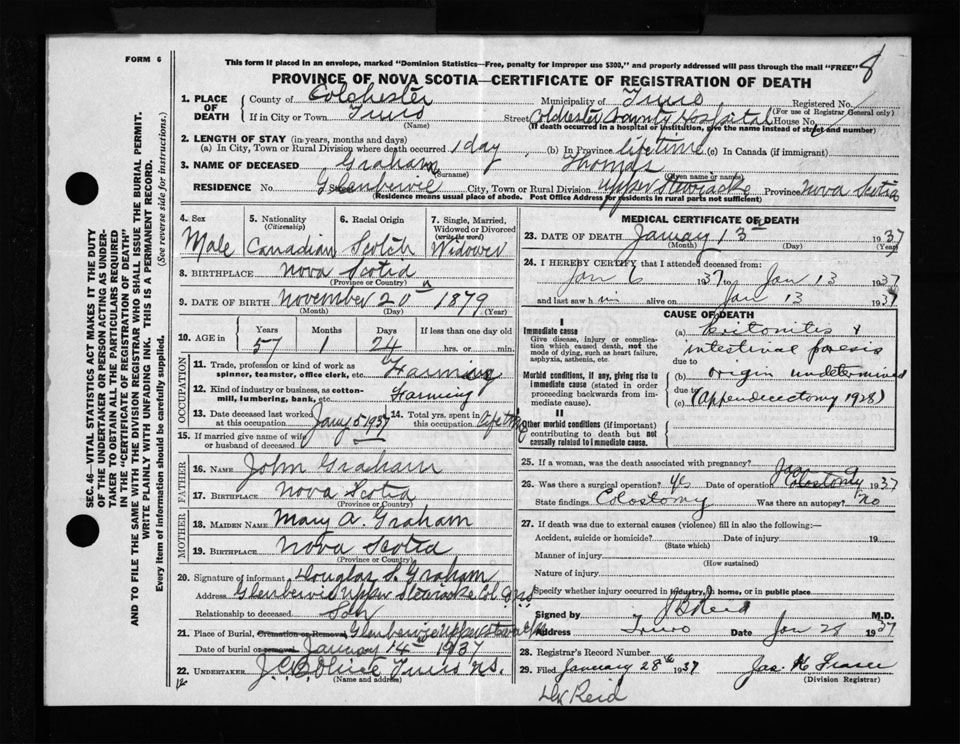 FORM 6
8
This form if placed in an envelope, marked "Dominion Statistics—Free, penalty for improper use $300," and properly addressed will pass through the mail "FREE"
PROVINCE OF NOVA SCOTIA—CERTIFICATE OF REGISTRATION OF DEATH
SEC. 46—VITAL STATISTICS ACT MAKES IT THE DUTY
OF THE UNDERTAKER OR PERSON ACTING AS UNDER-
TAKER TO OBTAIN ALL THE PARTICULARS REQUIRED
IN THE "CERTIFICATE OF REGISTRATION OF DEATH"
AND TO FILE THE SAME WITH THE DIVISION REGISTRAR WHO SHALL ISSUE THE BURIAL PERMIT.
WRITE PLAINLY WITH UNFADING INK. THIS IS A PERMANENT RECORD.
Every item of information should be carefully supplied. (See reverse side for instructions.)
1. PLACE OF DEATH County of Colchester Municipality of Truro Registered No.
(For use of Registrar General only)
If in City or Town Truro Street Colchester County Hospital House No.
(Name) (If death occurred in a hospital or institution, give the name instead of street and number)
2. LENGTH OF STAY (in years, months and days)
(a) In City, Town or Rural Division where death occurred 1 day, (b) In Province lifetime (c) In Canada (if immigrant)
3. NAME OF DECEASED Graham Thomas
(Surname) (Given name or names)
RESIDENCE No. Street Glenbervie City, Town or Rural Division Upper Stewiacke Province Nova Scotia
(Residence means usual place of abode. Post Office Address for residents in rural parts not sufficient)
4. Sex 5. Nationality (Citizenship) 6. Racial Origin 7. Single, Married, Widowed or Divorced (write the word)
Male Canadian Scotch Widower
8. BIRTHPLACE Nova Scotia
(Province or Country)
9. DATE OF BIRTH November 20 1879
(Month) (Day) (Year)
10. AGE IN Years Months Days If less than one day
57 1 24 hrs. or min.
OCCUPATION
11. Trade, profession or kind of work as spinner, teamster, office clerk, etc. Farming
12. Kind of industry or business, as cotton-mill, lumbering, bank, etc. Farming
13. Date deceased last worked at this occupation Jany 5 1937 14. Total yrs. spent in this occupation Lifetime
15. If married give name of wife or husband of deceased
FATHER
16. NAME John Graham
17. BIRTHPLACE Nova Scotia
(Province or Country)
MOTHER
18. MAIDEN NAME Mary A. Graham
19. BIRTHPLACE Nova Scotia
(Province or Country)
20. Signature of informant Douglas S. Graham
Address Glenbervie Upper Stewiacke Col
Relationship to deceased Son
21. Place of Burial, Cremation or Removal Glenbervie Upper Stewiacke
Date of burial or removal January 14th 1937
22. UNDERTAKER Truro N.S.
(Name and address)
MEDICAL CERTIFICATE OF DEATH
23. DATE OF DEATH January 13 1937
(Month) (Day) (Year)
24. I HEREBY CERTIFY that I attended deceased from:
Jan 6 1937 to Jan 13 1937
and last saw him alive on Jan 13 1937
CAUSE OF DEATH
I
Immediate cause
Give disease, injury or complication which caused death, not the mode of dying, such as heart failure, asphyxia, asthenia, etc.
(a) Peritonitis &
intestinal paresis
due to
Morbid conditions, if any, giving rise to immediate cause (stated in order proceeding backwards from immediate cause).
(b) origin undetermined
due to
(c) (appendicectomy 1928)
II
Other morbid conditions (if important) contributing to death but not causally related to immediate cause.
25. If a woman, was the death associated with pregnancy?
26. Was there a surgical operation? Yes Date of operation Jan 9 1937
Colostomy
State findings Colostomy Was there an autopsy? no
27. If death was due to external causes (violence) fill in also the following:—
Accident, suicide or homicide? Date of injury 19
(State which)
Manner of injury
(How sustained)
Nature of injury
Specify whether injury occurred in industry, in home, or in public place
Signed by Reid M.D.
Address Truro Date Jan 28 1937
28. Registrar's Record Number
29. Filed January 28th 1937 Jas. H. Fraser
(Division Registrar)
Reid